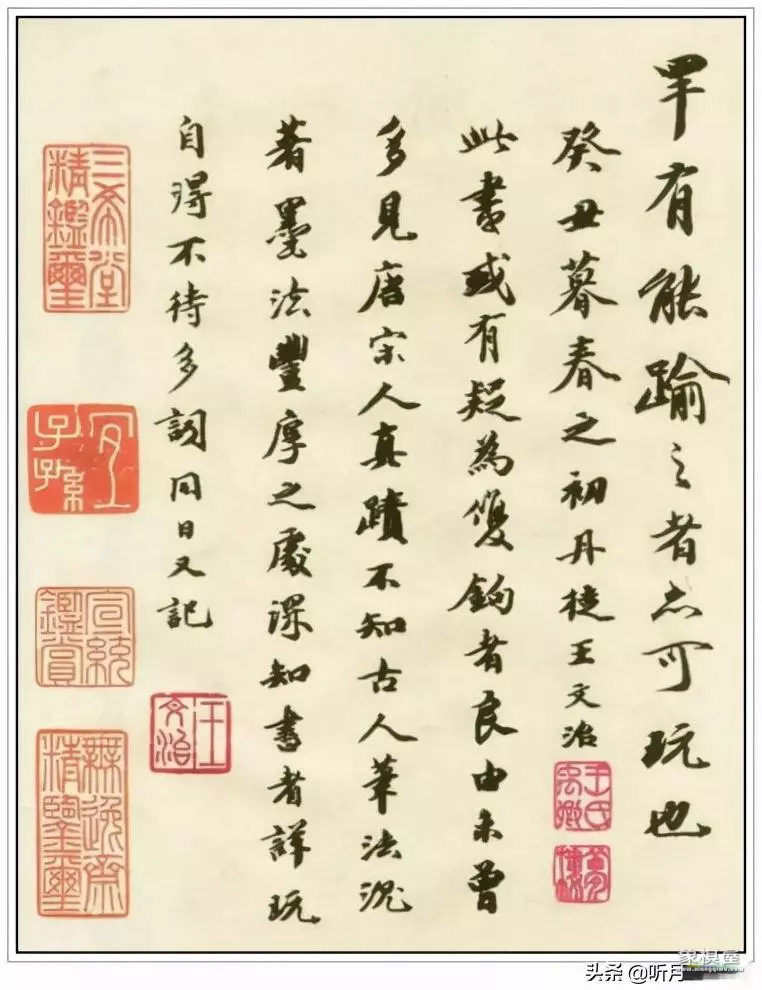 罕有能踰之者亦可玩也
癸丑暮春之初丹徒王文治
王氏禹卿
此書或有疑為雙鉤者良由未曾
多見唐宋人真蹟不知古人筆法沉
著墨法豐厚之處深知書者詳玩
自得不待多詞同日又記
王文治
三希堂精鑑璽
宜子孫
宣統鑑賞
無逸齋精鑒璽
头条 @听月
象棋屋
www.xiangqiwu.com